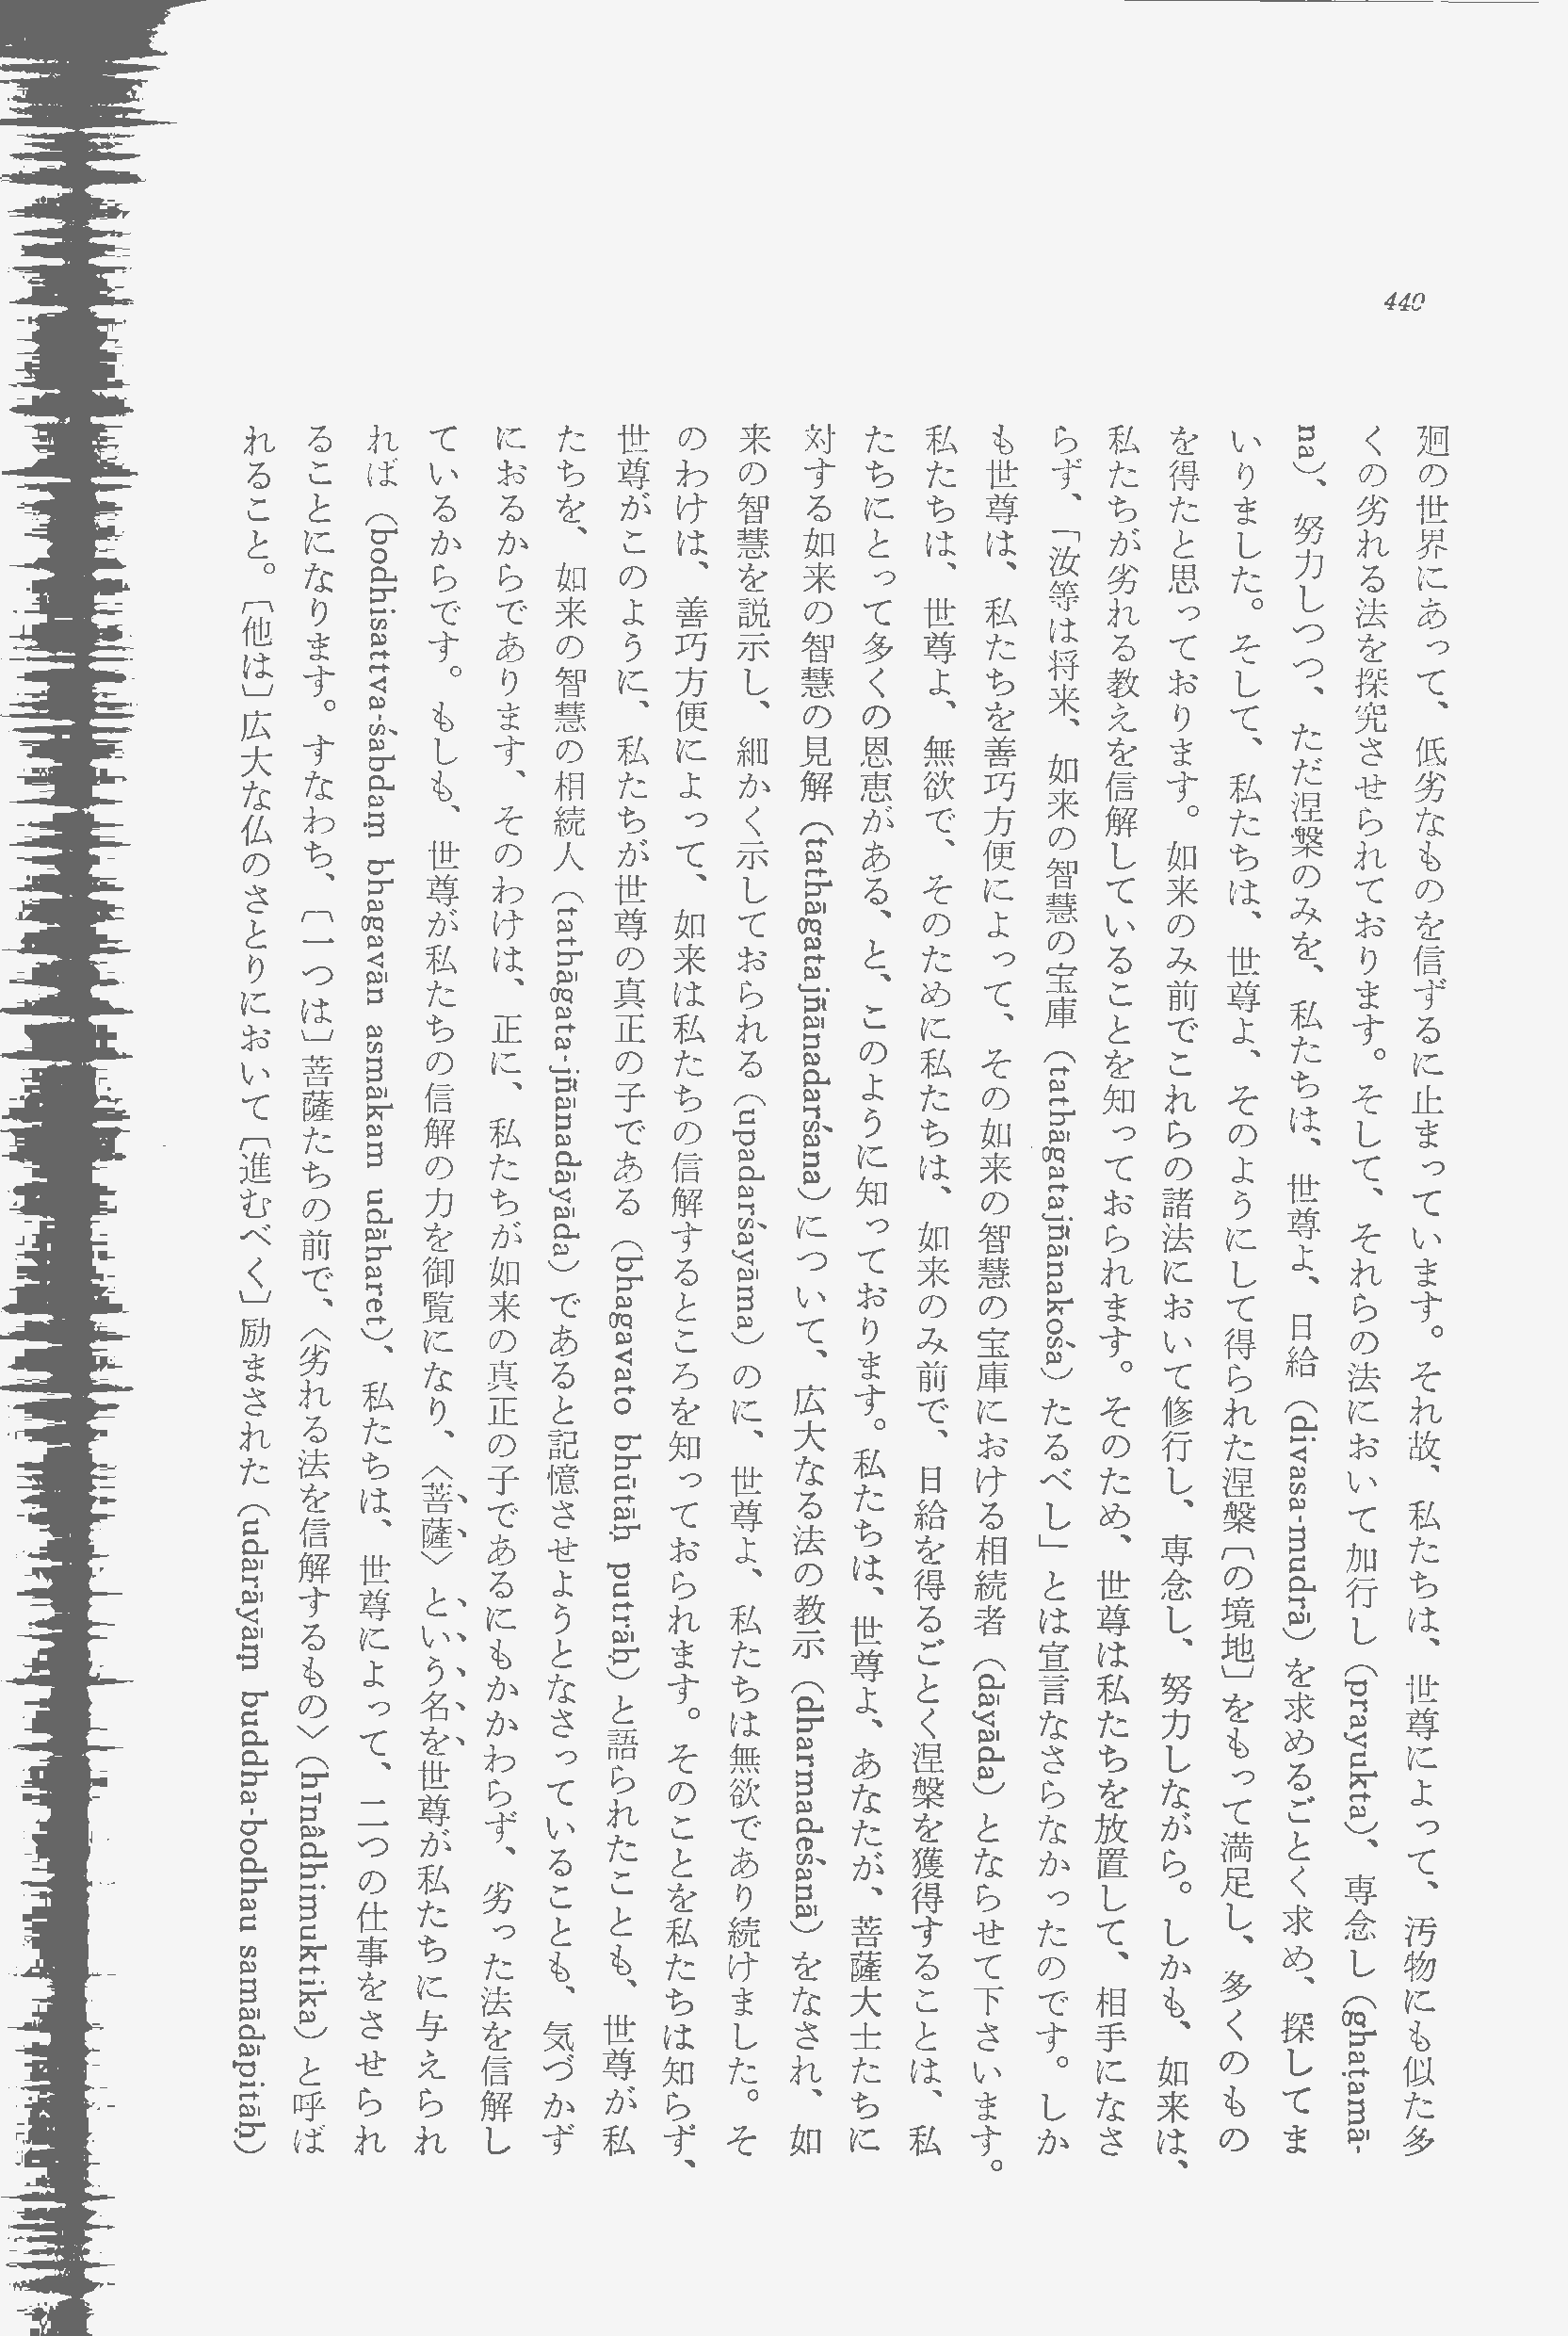 440
廻の世界にあって、低劣なものを信ずるに止まっています。それ故、私たちは、世尊によって、汚物にも似た多
くの劣れる法を探究させられております。そして、それらの法において加行し（prayukta）、専念し（ghaṭamā-
na）、努力しつつ、ただ涅槃のみを、私たちは、世尊よ、日給（divasa-mudrā）を求めるごとく求め、探してま
いりました。そして、私たちは、世尊よ、そのようにして得られた涅槃〔の境地〕をもって満足し、多くのもの
を得たと思っております。如来のみ前でこれらの諸法において修行し、専念し、努力しながら。しかも、如来は、
私たちが劣れる教えを信解していることを知っておられます。そのため、世尊は私たちを放置して、相手になさ
らず、「汝等は将来、如来の智慧の宝庫（tathāgatajñānakośa）たるべし」とは宣言なさらなかったのです。しか
も世尊は、私たちを善巧方便によって、その如来の智慧の宝庫における相続者（dāyāda）とならせて下さいます。
私たちは、世尊よ、無欲で、そのために私たちは、如来のみ前で、日給を得るごとく涅槃を獲得することは、私
たちにとって多くの恩恵がある、と、このように知っております。私たちは、世尊よ、あなたが、菩薩大士たちに
対する如来の智慧の見解（tathāgatajñānadarśana）について、広大なる法の教示（dharmadeśanā）をなされ、如
来の智慧を説示し、細かく示しておられる（upadarśayāma）のに、世尊よ、私たちは無欲であり続けました。そ
のわけは、善巧方便によって、如来は私たちの信解するところを知っておられます。そのことを私たちは知らず、
世尊がこのように、私たちが世尊の真正の子である（bhagavato bhūtāḥ putrāḥ）と語られたことも、世尊が私
たちを、如来の智慧の相続人（tathāgata-jñānadāyāda）であると記憶させようとなさっていることも、気づかず
におるからであります、そのわけは、正に、私たちが如来の真正の子であるにもかかわらず、劣った法を信解し
ているからです。もしも、世尊が私たちの信解の力を御覧になり、〈菩薩〉という名を世尊が私たちに与えられ
れば（bodhisattva-śabdaṃ bhagavān asmākam udāharet）、私たちは、世尊によって、二つの仕事をさせられ
ることになります。すなわち、〔一つは〕菩薩たちの前で、〈劣れる法を信解するもの〉（hīnâdhimuktika）と呼ば
れること。〔他は〕広大な仏のさとりにおいて〔進むべく〕励まされた（udārāyāṃ buddha-bodhau samādāpitāḥ）